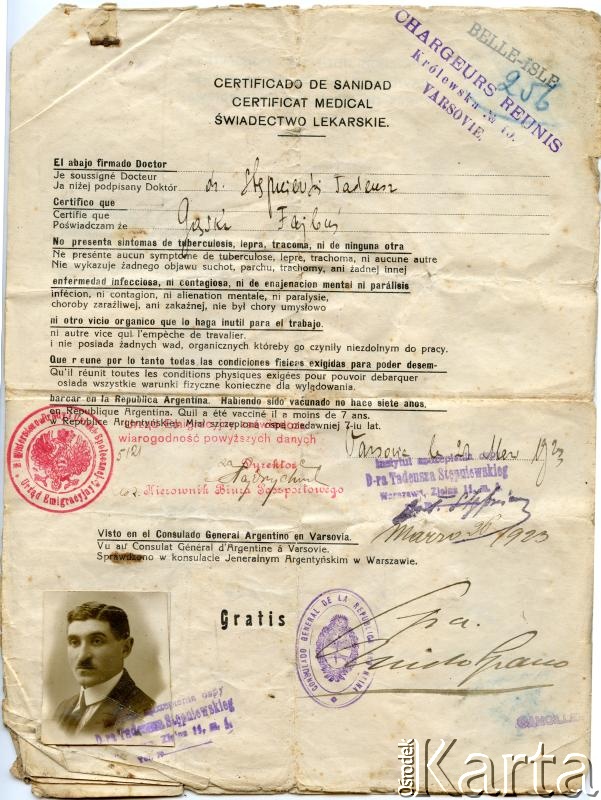 BELLE-ISLE
CHARGEURS REUNIS
Królewska № 15.
VARSOVIE.
256
CERTIFICADO DE SANIDAD
CERTIFICAT MEDICAL
ŚWIADECTWO LEKARSKIE.
El abajo firmado Doctor
Je soussigné Docteur
Ja niżej podpisany Doktór
dr. Stępniewski Tadeusz
Certifico que
Certifie que
Poświadczam że
Fajbuś
No presenta sintomas de tuberculosis, lepra, tracoma, ni de ninguna otra
Ne presénte aucun symptome de tuberculose, lepre, trachoma, ni aucune autre
Nie wykazuje żadnego objawu suchot, parchu, trachomy, ani żadnej innej
enfermedad infecciosa, ni contagiosa, ni de enajenacion mental ni parálisis
infécion, ni contagion, ni alienation mentale, ni paralysie,
choroby zaraźliwej, ani zakaźnej, nie był chory umysłowo
ni otro vicio organico que lo haga inutil para el trabajo.
ni autre vice qui l'empèche de travalier.
i nie posiada żadnych wad, organicznych któreby go czyniły niezdolnym do pracy.
Que reune por lo tanto todas las condiciones fisicas exigidas para poder desem-
Qu'il réunit toutes les conditions physiques exigées pour pouvoir debarquer
osiada wszystkie warunki fizyczne konieczne dla wylądowania.
barcar en la Republica Argentina. Habiendo sido vacunado no hace siete anos.
en Republique Argentina. Quil a été vacciné il a moins de 7 ans.
w Republice Argentyńskiej Miał szczepioną ospę niedawniej 7-iu lat.
wiarogodność powyższych danych
Dyrektor
Kierownik Biura Paszportowego
Urząd Emigracyjny
Varsovie
1923
Instytut szczepienia ospy
D-ra Tadeusza Stępniewskiego
Warszawa, Zielna 11, m.
Visto en el Consulado General Argentino en Varsovia.
Vu au Consulat Général d'Argentine à Varsovie.
Sprawdzono w konsulacie Jeneralnym Argentyńskim w Warszawie.
Marzo 26/1923
Gratis
CONSULADO GENERAL DE LA REPUBLICA ARGENTINA
szczepienia ospy
D-ra Tadeusza Stępniewskiego
Zielna 11, m.
CANCILLER
Ośrodek
Karta